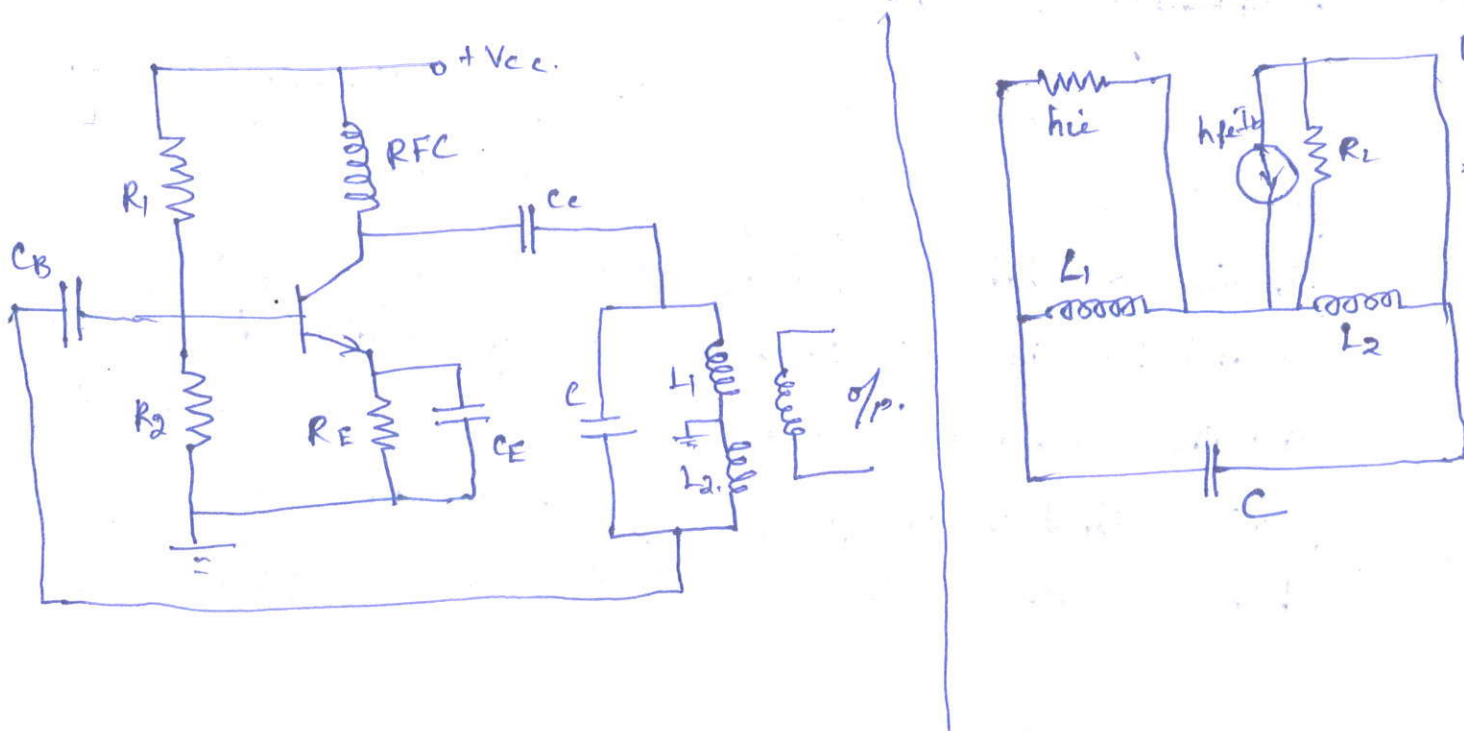 + Vcc.
RFC
R1
Cc
CB
R2
RE
CE
C
L1
L2.
o/p.
hie
hfeIb
RL
L1
L2
C